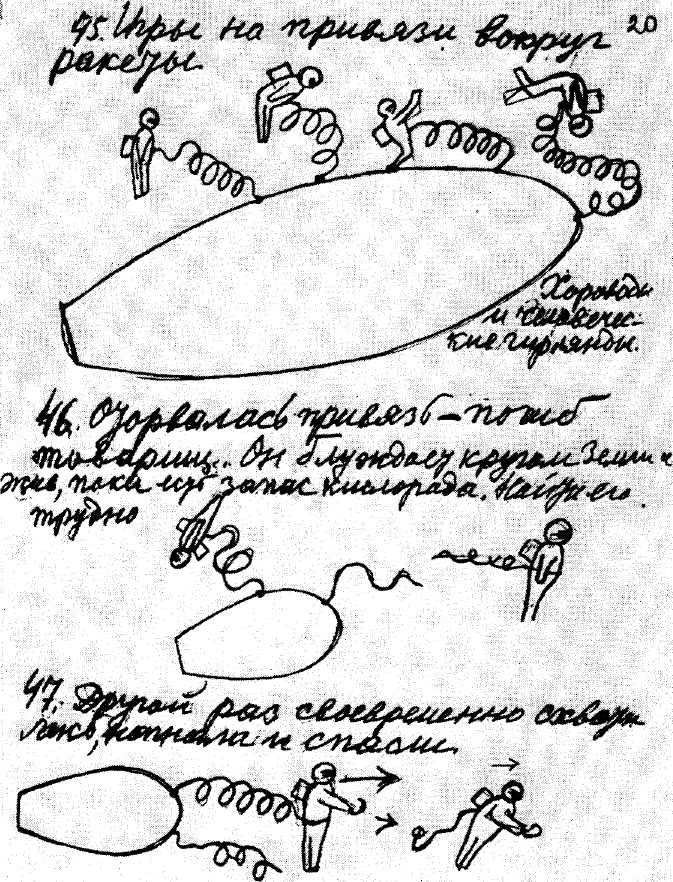 20
45. Игры на привязи вокруг
ракеты.
Хороводы
и человечес-
кие гирлянды.
46. Оторвалась привязь – погиб
товарищ.. Он блуждает кругом Земли и
жив, пока есть запас кислорода. Найти его
трудно
47. Другой раз своевременно
догнали и спасли.